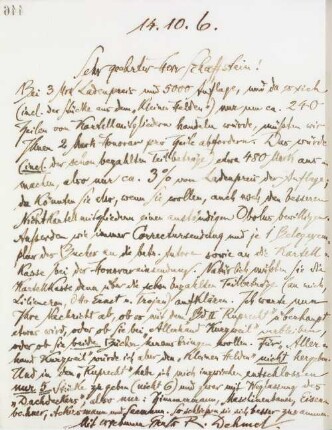 14.10.6.
Sehr geehrter Herr Schaffstein!
Bei 3 Mk Ladenpreis und 5000 Auflage, und da es sich
(incl. der Stücke aus dem „Kleinen Helden") nur um ca. 240
Zeilen von Kartellmitgliedern handeln würde, müßten wir
Ihnen 2 Mark Honorar pro Zeile abfordern. Das würde
(incl. der schon bezahlten Teilbeträge) etwa 480 Mark aus-
machen, also nur ca. 3% vom Ladenpreis der Auflage;
da könnten Sie eher, wenn Sie wollen, auch noch den besseren
Nichtkartellmitgliedern einen anständigen Obolus bewilligen.
Außerdem wie immer Correctursendung und je 1 Belegexem-
plar der Bücher an die betr. Autoren sowie an die Kartell-
Kasse bei der Honorareinsendung. Natürlich müßten Sie die
Kartellkasse dann über die schon bezahlten Teilbeträge (an mich,
Liliencron, Otto Ernst u. Trojan) aufklären. Ich warte nun
Ihre Nachricht ab, ob es mit dem Bd. II Ruprecht überhaupt
etwas wird, oder ob Sie bei „Allerhand Kurzweil" verbleiben
oder ob Sie beide Bücher herausbringen wollen. Für „Aller-
hand Kurzweil" würde ich aber den „Kleinen Helden" nicht hergeben.
Und in den „Ruprecht" habe ich mich inzwischen entschlossen
nur 5 Stücke zu geben (nicht 6) und zwar mit Weglassung des
„Dachdeckers", also nur: Zimmermann, Maschinenbauer, Eisen-
bahner, Ackersmann und Seemann. So schließen sie sich besser zusammen.
Mit ergebenem Gruß R. Dehmel.